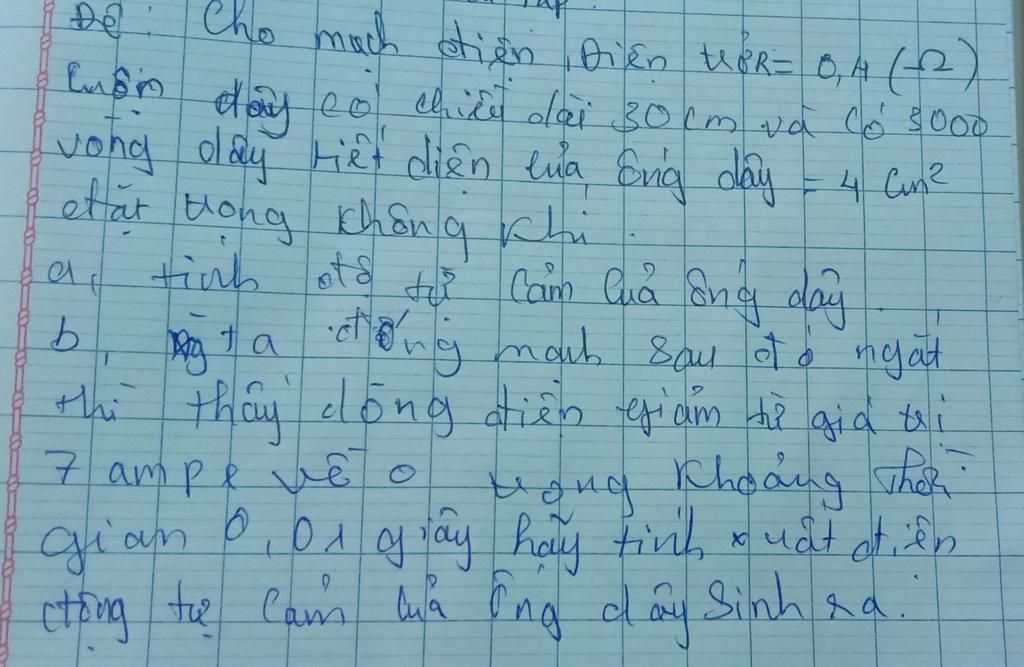 Đề: Cho mạch điện, điện trở R = 0,4 (Ω)
Cuộn dây có chiều dài 30 cm và có 3000
vòng dây tiết diện của ống dây = 4 cm²
đặt trong không khí.
a, tính độ tự cảm của ống dây
b, ngta đóng mạch sau đó ngắt
thì thấy dòng điện giảm từ giá trị
7 ampe về 0 trong khoảng thời
gian 0,01 giây hãy tính xuất điện
động tự cảm của ống dây sinh ra.